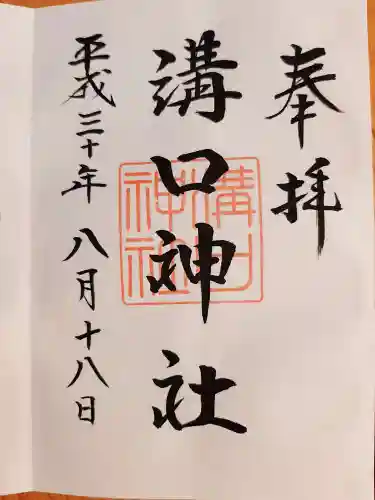 奉拝
溝口神社
溝口
神社
平成三十年 八月十八日